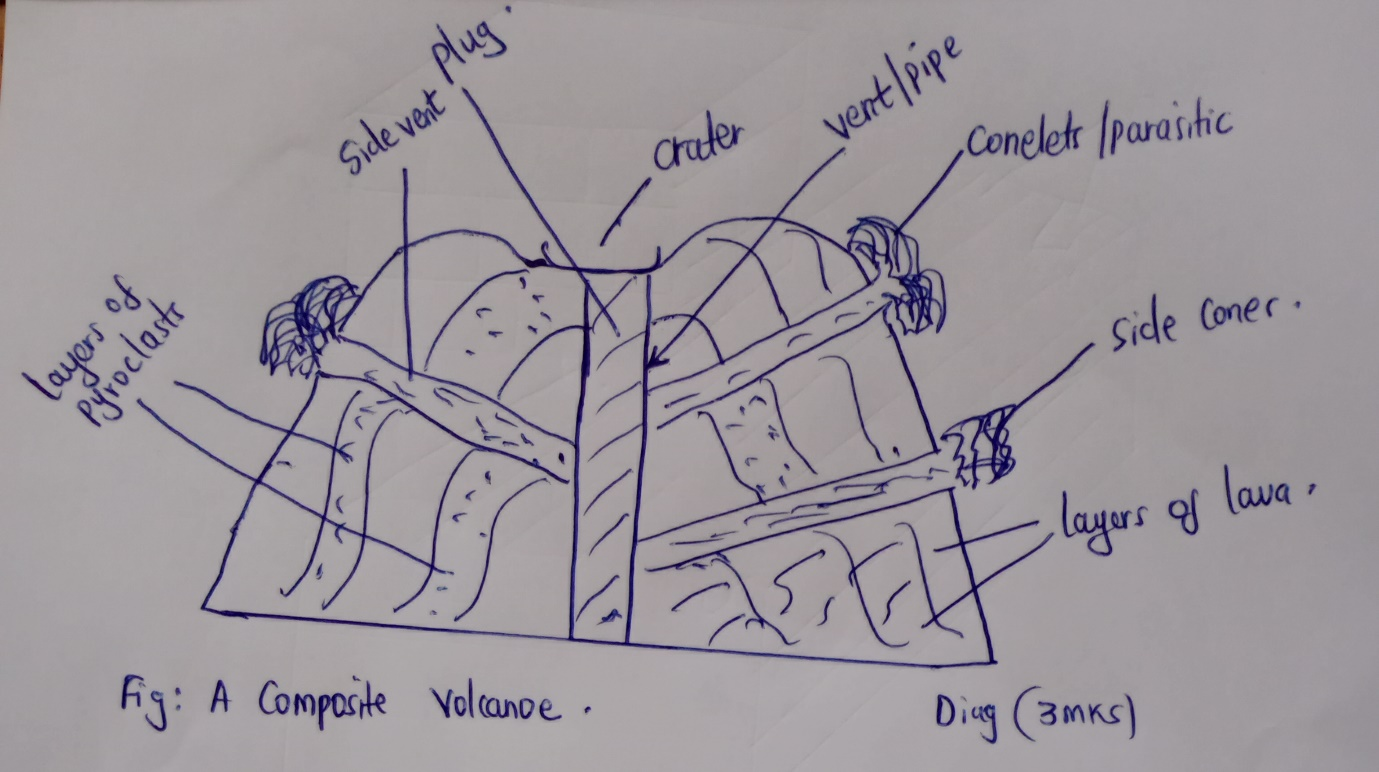 plug.
side vent
crater
vent/pipe
Conelets/parasitic
layers of
pyroclasts
side coner.
layers of lava.
Fig: A Composite Volcanoe.
Diag (3mks)